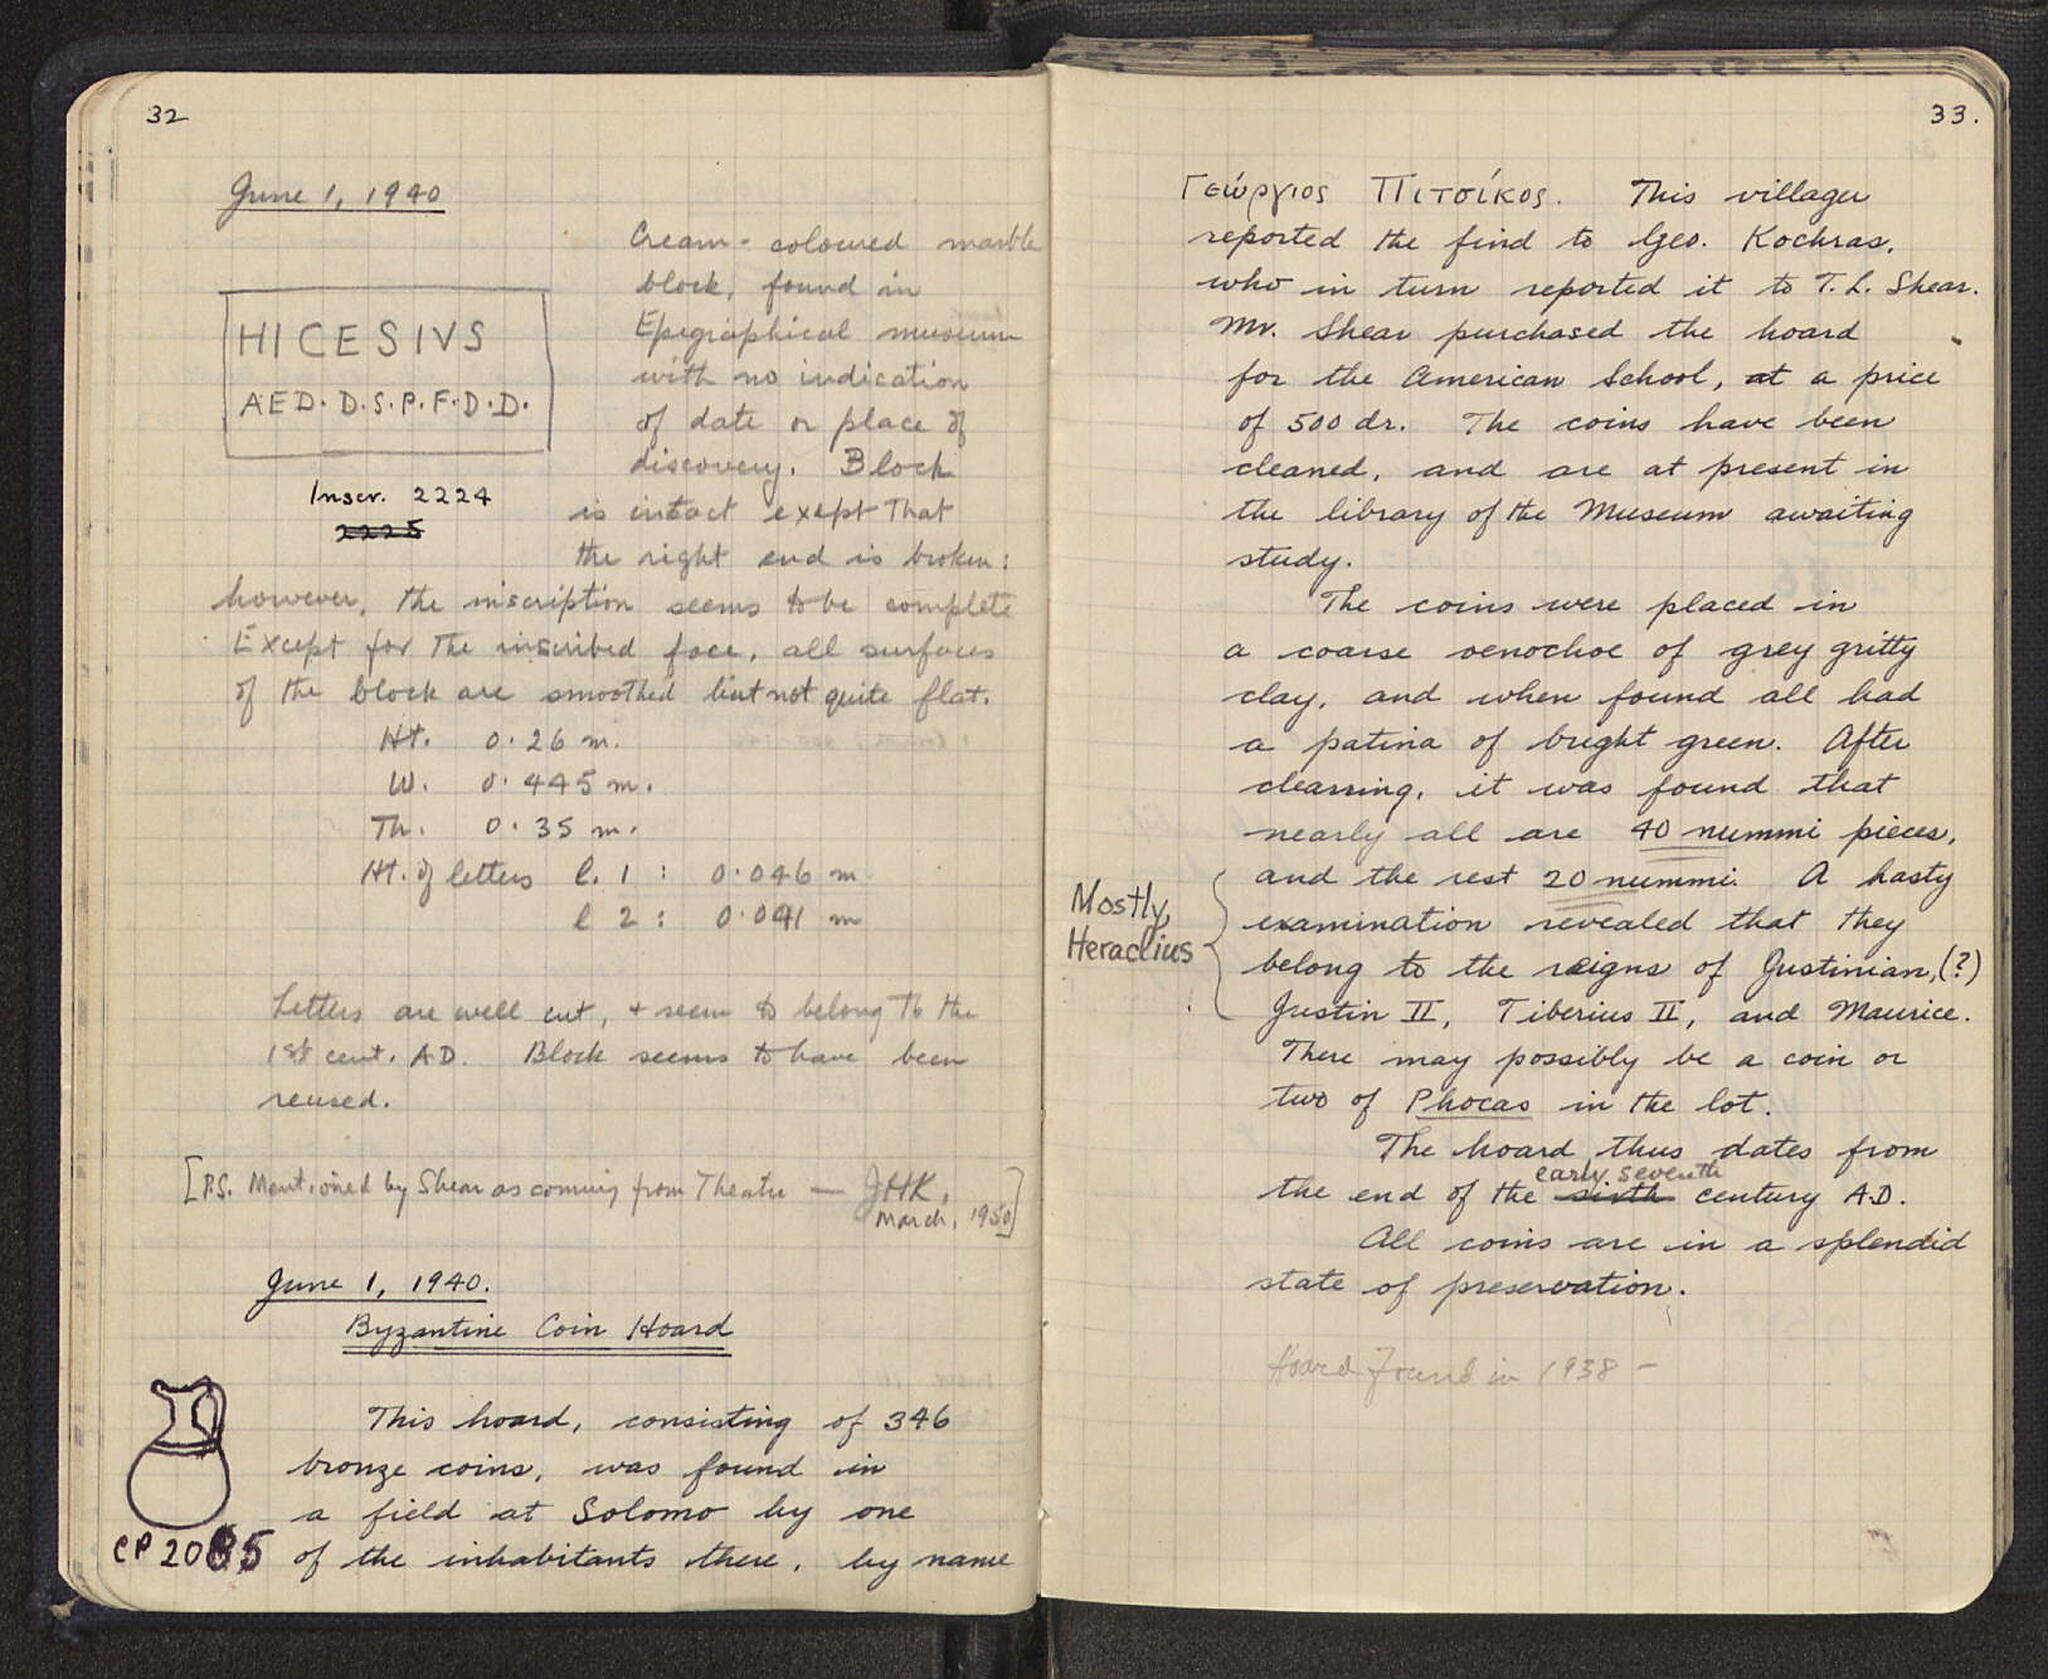 32
June 1, 1940
HICESIVS
AED. D.S.P.F.D.D.
Inscr. 2224
2225
Cream-coloured marble
block, found in
Epigraphical museum
with no indication
of date or place of
discovery. Block
is intact except that
the right end is broken:
however, the inscription seems to be complete
Except for the inscribed face, all surfaces
of the block are smoothed but not quite flat.
Ht. 0.26 m.
W. 0.445 m.
Th. 0.35 m.
Ht. of letters l. 1 : 0.046 m
l 2 : 0.041 m
Letters are well cut, + seem to belong to the
1st cent. A.D. Block seems to have been
reused.
[P.S. Mentioned by Shear as coming from Theatre — JHK,
March, 1950]
June 1, 1940.
Byzantine Coin Hoard
This hoard, consisting of 346
bronze coins, was found in
a field at Solomo by one
of the inhabitants there, by name
CP 2085
33.
Γεώργιος Πιτσίκος. This villager
reported the find to Geo. Kochras,
who in turn reported it to T. L. Shear.
Mr. Shear purchased the hoard
for the American School, at a price
of 500 dr. The coins have been
cleaned, and are at present in
the library of the Museum awaiting
study.
The coins were placed in
a coarse oenochoe of grey gritty
clay, and when found all had
a patina of bright green. After
cleaning, it was found that
nearly all are 40 nummi pieces,
and the rest 20 nummi. A hasty
examination revealed that they
belong to the reigns of Justinian,(?)
Justin II, Tiberius II, and Maurice.
Mostly
Heraclius
There may possibly be a coin or
two of Phocas in the lot.
The hoard thus dates from
early seventh
the end of the sixth century A.D.
All coins are in a splendid
state of preservation.
Hoard found in 1938 —